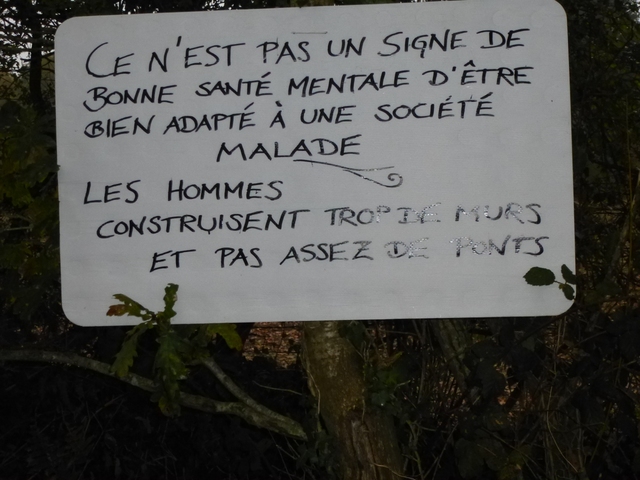 CE N'EST PAS UN SIGNE DE
BONNE SANTÉ MENTALE D'ÊTRE
BIEN ADAPTÉ À UNE SOCIÉTÉ
MALADE
LES HOMMES
CONSTRUISENT TROP DE MURS
ET PAS ASSEZ DE PONTS